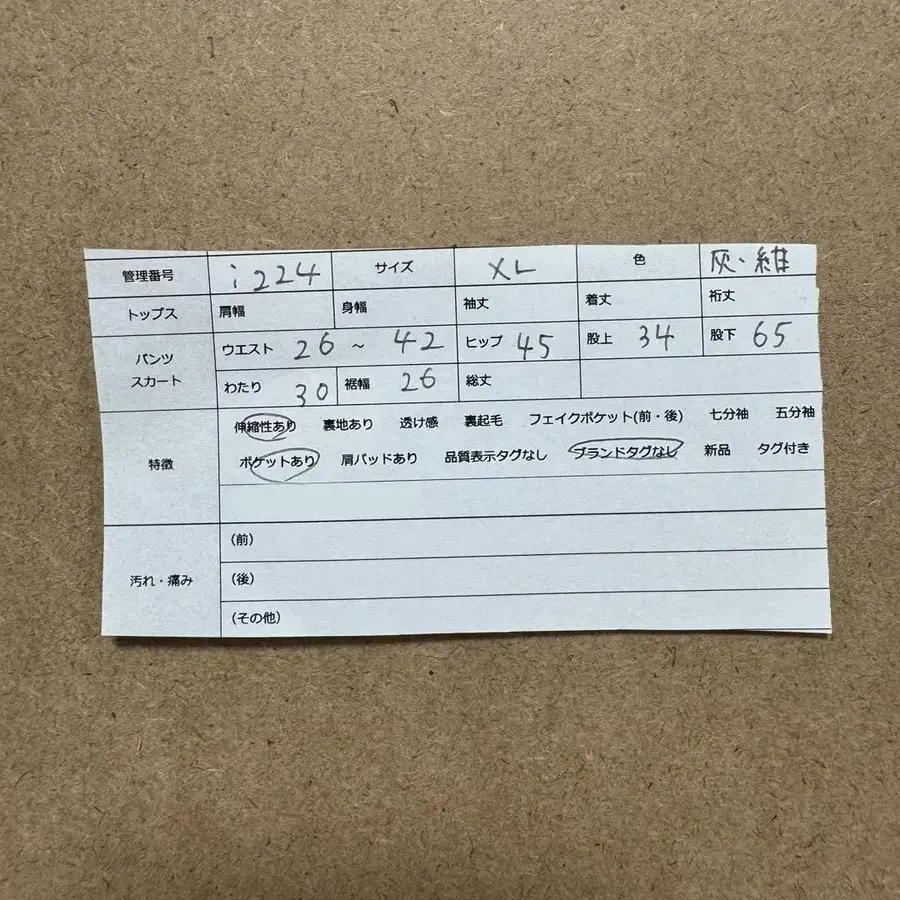 管理番号 i224 サイズ XL 色 灰・
トップス 肩幅 身幅 袖丈 着丈 裄丈
パンツ スカート ウエスト 26 ~ 42 ヒップ 45 股上 34 股下 65
わたり 30 裾幅 26 総丈
特徴 伸縮性あり 裏地あり 透け感 裏起毛 フェイクポケット(前・後) 七分袖 五分袖
ポケットあり 肩パッドあり 品質表示タグなし ブランドタグなし 新品 タグ付き
汚れ・痛み (前)
(後)
(その他)